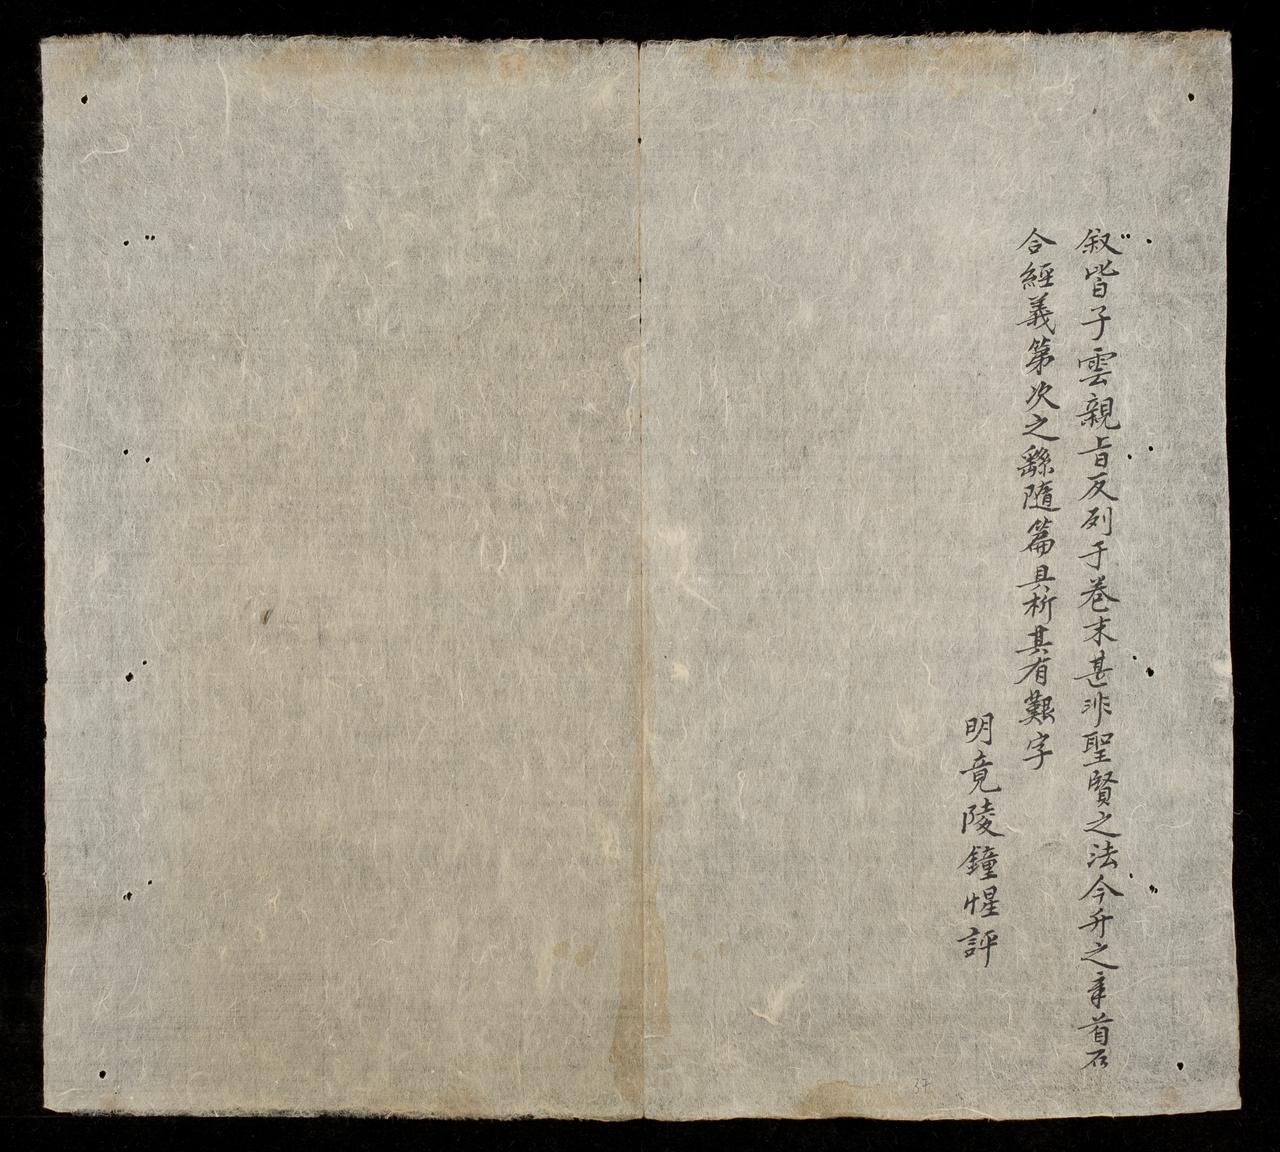 叙皆子雲親旨反列于卷末甚非聖賢之法今升之章首石
合經義第次之繇隨篇具析其有艱字
明竟陵鐘惺評
37